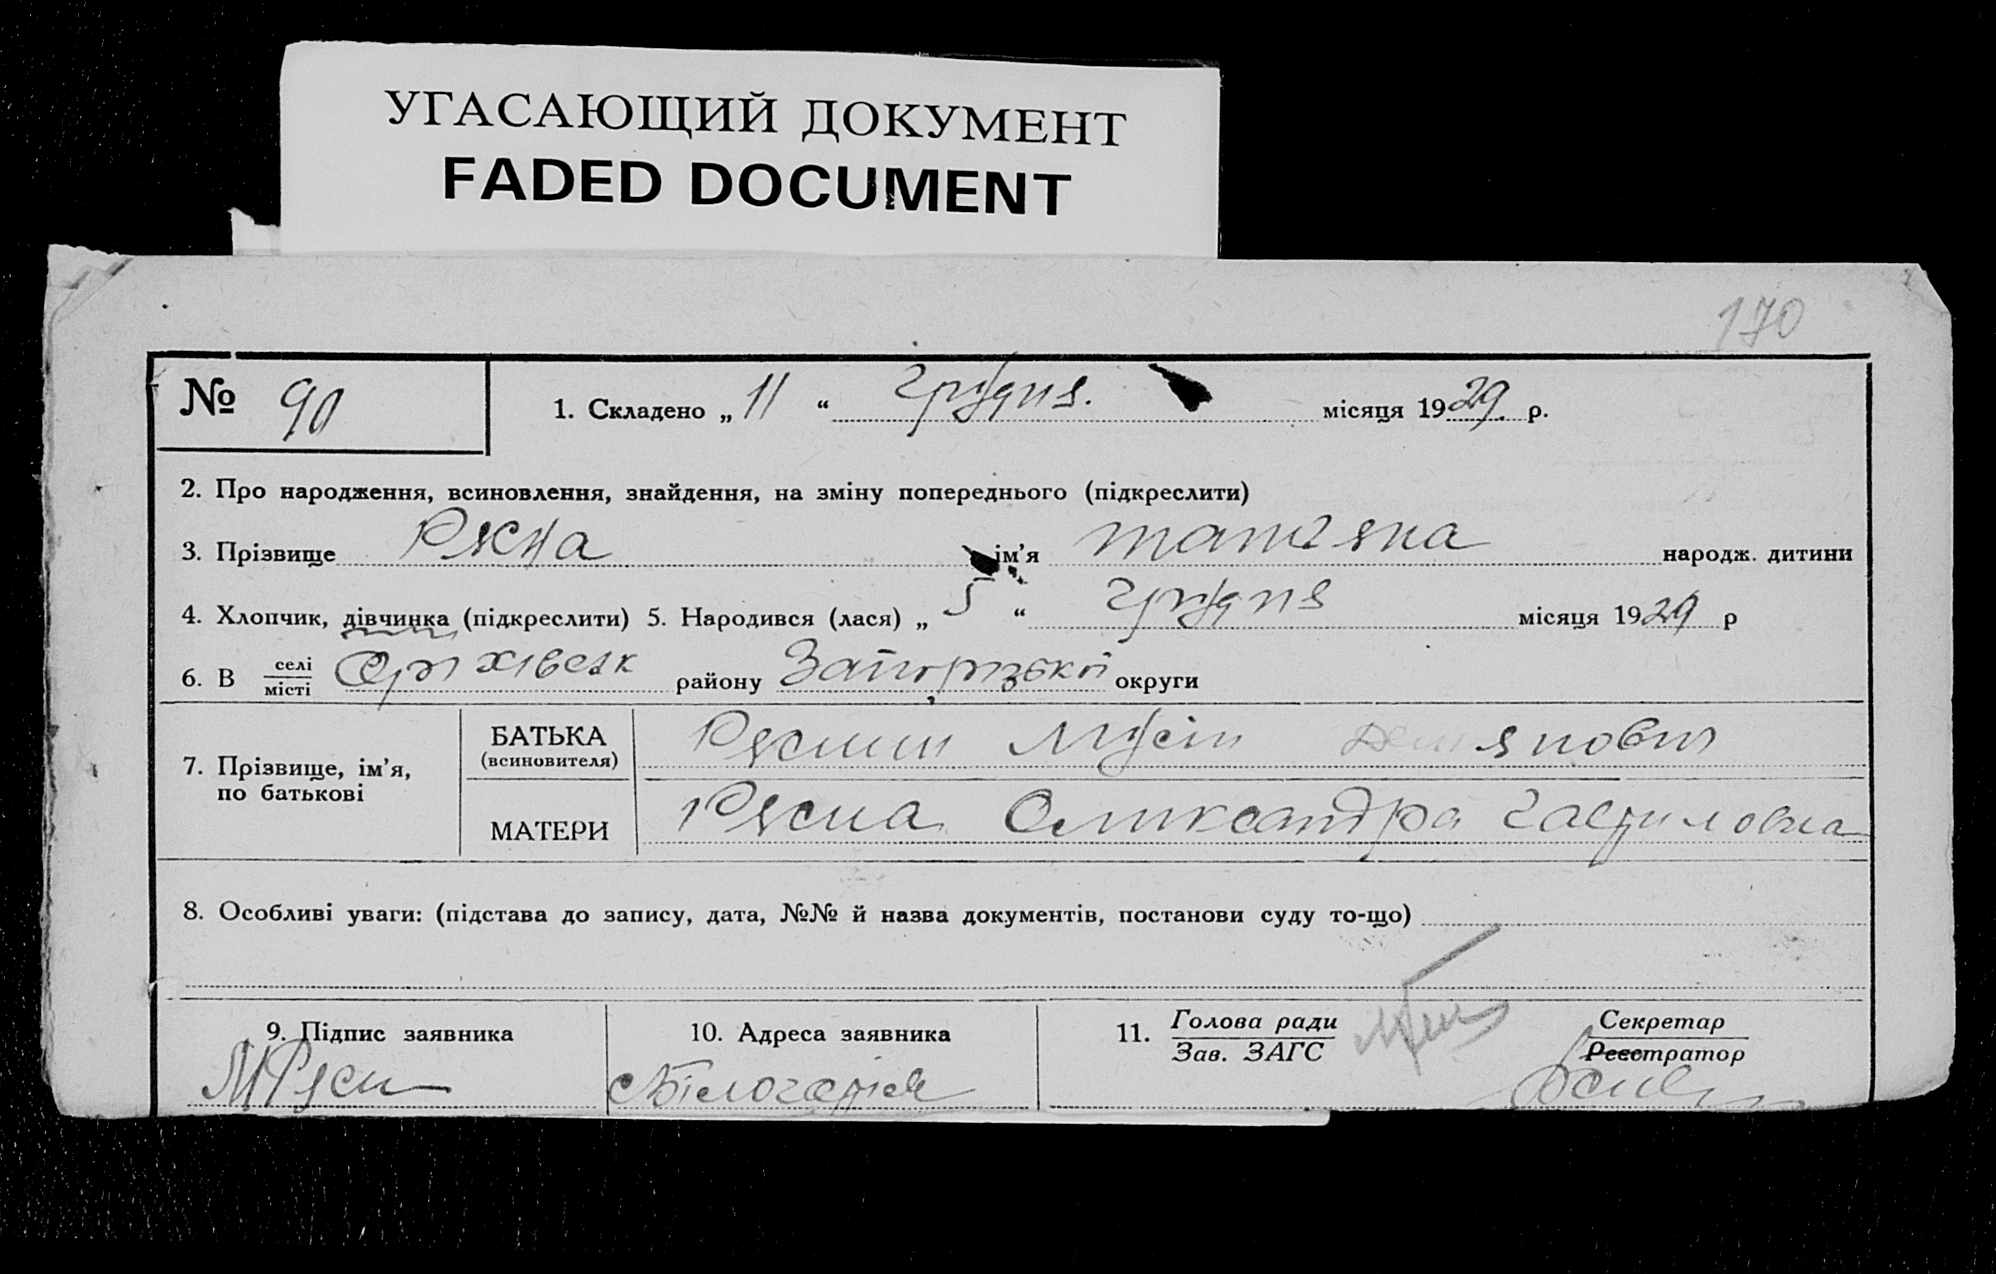 УГАСАЮЩИЙ ДОКУМЕНТ
FADED DOCUMENT
170
№ 90
1. Складено „ 11 “ грудня. місяця 1929 р.
2. Про народження, всиновлення, знайдення, на зміну попереднього (підкреслити)
3. Прізвище Рясна ім’я Татяна народж. дитини
4. Хлопчик, дівчинка (підкреслити) 5. Народився (лася) „ 5 “ грудня місяця 1929 р
6. В селі місті Оріхівськ району Запорізької округи
7. Прізвище, ім’я, по батькові
БАТЬКА (всиновителя) Рясний Мусій Демянович
МАТЕРИ Рясна Олександра Гавриловна
8. Особливі уваги: (підстава до запису, дата, №№ й назва документів, постанови суду то-що)
9. Підпис заявника
МРясн
10. Адреса заявника
11. Голова ради Зав. ЗАГС
Секретар Реєстратор